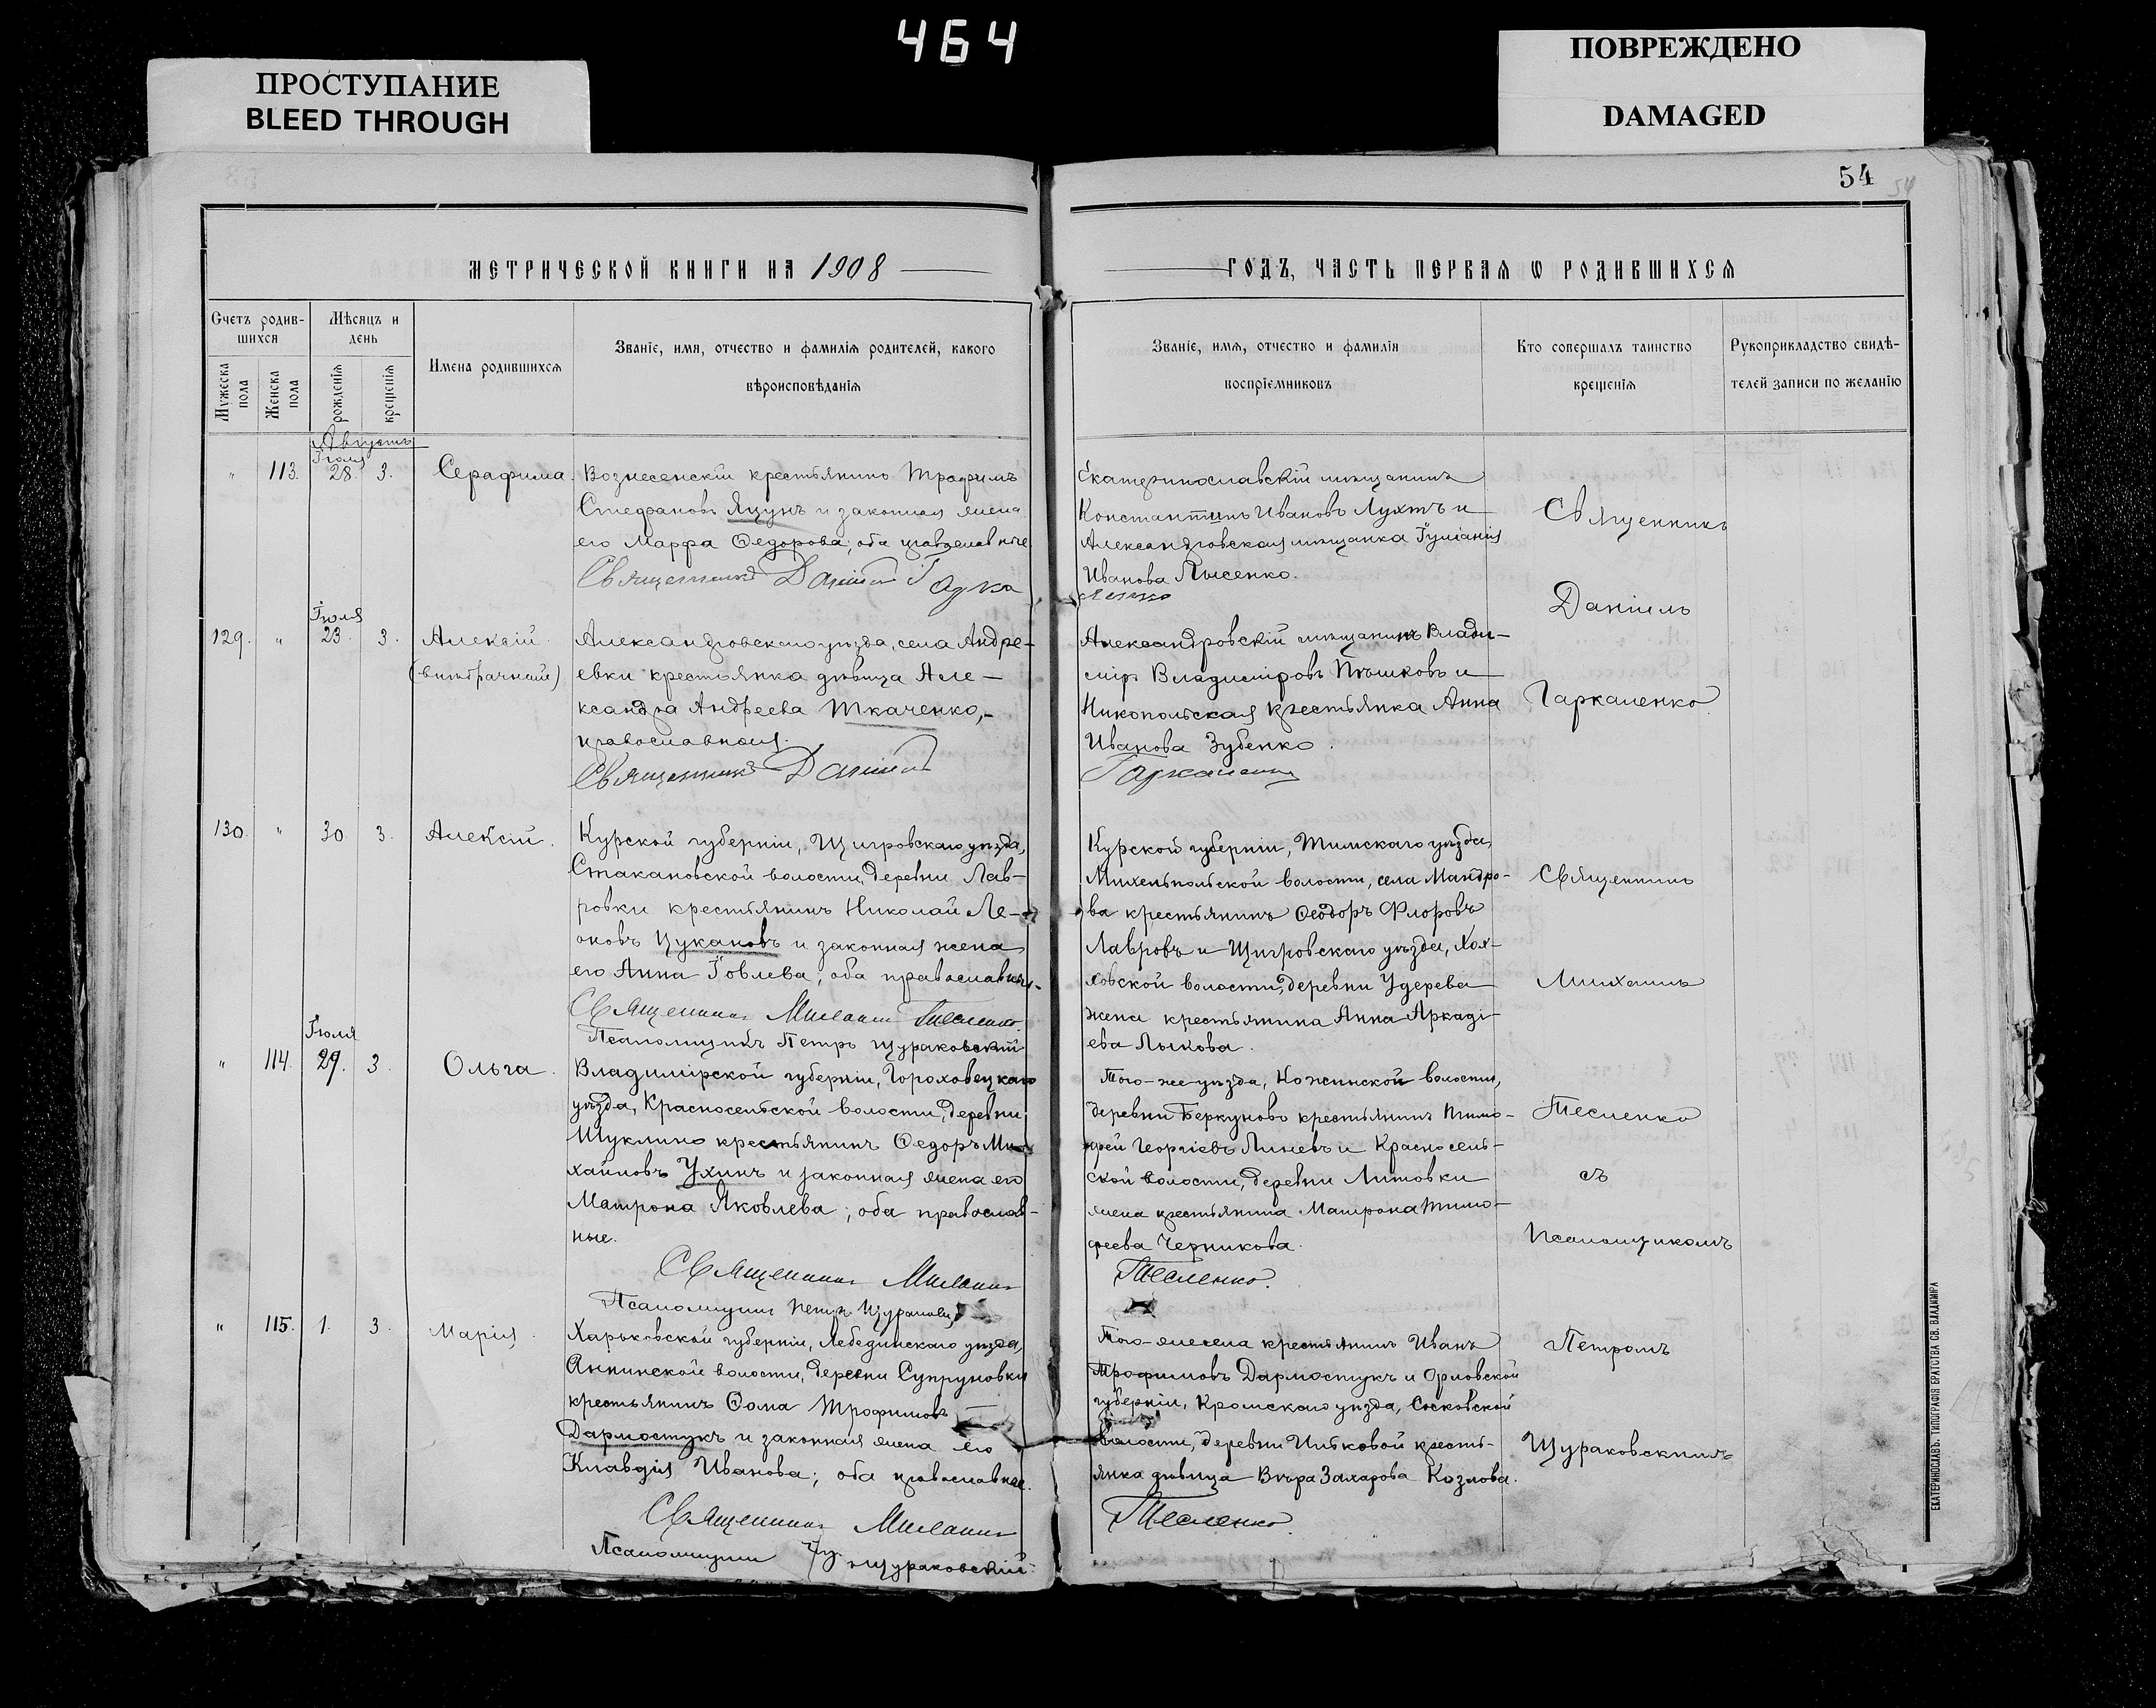 464
ПРОСТУПАНИЕ
BLEED THROUGH
ПОВРЕЖДЕНО
DAMAGED
54
МЕТРИЧЕСКОЙ КНИГИ НА 1908
Счетъ родив-
шихся
Мѣсяцъ и
день
Мужеска
пола
Женска
пола
рожденїя
крещенїя
Имена родившихся
Званїе, имя, отчество и фамилїя родителей, какого
вѣроисповѣданїя
Августъ
Іюля
" 113. 28. 3. Серафима.
Вознесенскій крестьянинъ Трофимъ
Стефановъ Яцунъ и законная жена
его Марфа Ѳедорова, оба православные
Священникъ Даніилъ
Іюля
129. " 23. 3. Алексій
(внѣбрачный)
Александровскаго уѣзда, села Андре-
евки крестьянка дѣвица Але-
ксандра Андреева Ткаченко,
православная.
Священникъ Даніилъ
130. " 30. 3. Алексій.
Курской губерніи, Щигровскаго уѣзда,
Стакановской волости, деревни Лав-
ровки крестьянинъ Николай Ле-
оновъ Цукановъ и законная жена
его Анна Іовлева; оба православны
Священникъ Михаилъ Тесленко.
Псаломщикъ Петръ Щураковскій
Іюля
" 114. 29. 3. Ольга.
Владимірской губерніи, Гороховецкаго
уѣзда, Красносельской волости, деревни
Шуклино крестьянинъ Ѳедоръ Ми-
хайловъ Ухинъ и законная жена его
Матрона Яковлева; оба православ-
ные.
Священникъ Михаилъ
Псаломщикъ Петръ
" 115. 1. 3. Марія.
Харьковской губерніи, Лебединскаго уѣзда,
Аннинской волости, деревни Супруновки
крестьянинъ Ѳома Трофимовъ
Дармостукъ и законная жена его
Клавдія Иванова; оба православные.
Священникъ Михаилъ
Псаломщикъ Щураковскій
ГОДЪ, ЧАСТЬ ПЕРВАЯ Ѡ РОДИВШИХСЯ
Званїе, имя, отчество и фамилїя
воспрїемниковъ
Кто совершалъ таинство
крещенїя
Рукоприкладство свидѣ-
телей записи по желанїю
Екатеринославскій мѣщанинъ
Константинъ Ивановъ Лухтъ и
Александровская мѣщанка Іуліанія
Иванова Лысенко.
Александровскій мѣщанинъ Влади-
міръ Владиміровъ Пѣшковъ и
Никопольская крестьянка Анна
Иванова Зубенко.
Гаркаленко
Курской губерніи, Тимскаго уѣзда,
волости, села Мандро-
ва крестьянинъ Ѳеодоръ Флоровъ
Лавровъ и Щигровскаго уѣзда, Хох-
ловской волости, деревни Удерева
жена крестьянина Анна Аркаді-
ева Лыкова.
Того-же уѣзда, Кожинской волости,
деревни Беркуново крестьянинъ Тимо-
фей Георгіевъ Линевъ и Красносель-
ской волости, деревни Литовки
жена крестьянина Матрона Тимо-
феева Черникова.
Тесленко.
Того-же села крестьянинъ Иванъ
Трофимовъ Дармостукъ и Орловской
губерніи, Кромскаго уѣзда, Сосковской
волости, деревни Ильковой кресть-
янка дѣвица Вѣра Захарова Козлова.
Тесленко.
Священникъ
Даніилъ
Гаркаленко.
Священникъ
Михаилъ
Тесленко
съ
псаломщикомъ
Петромъ
Щураковскимъ
ЕКАТЕРИНОСЛАВЪ. ТИПОГРАФІЯ БРАТСТВА СВ. ВЛАДИМІРА